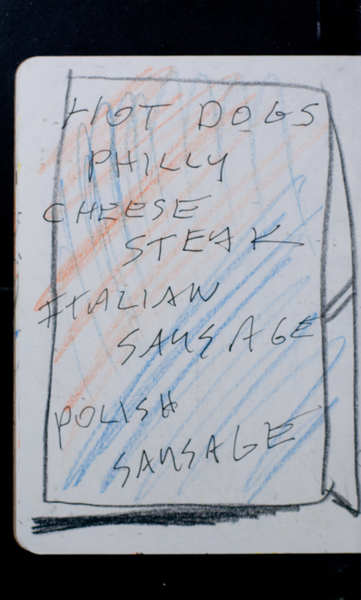 HOT DOGS
PHILLY
CHEESE
STEAK
ITALIAN
SAUSAGE
POLISH
SAUSAGE